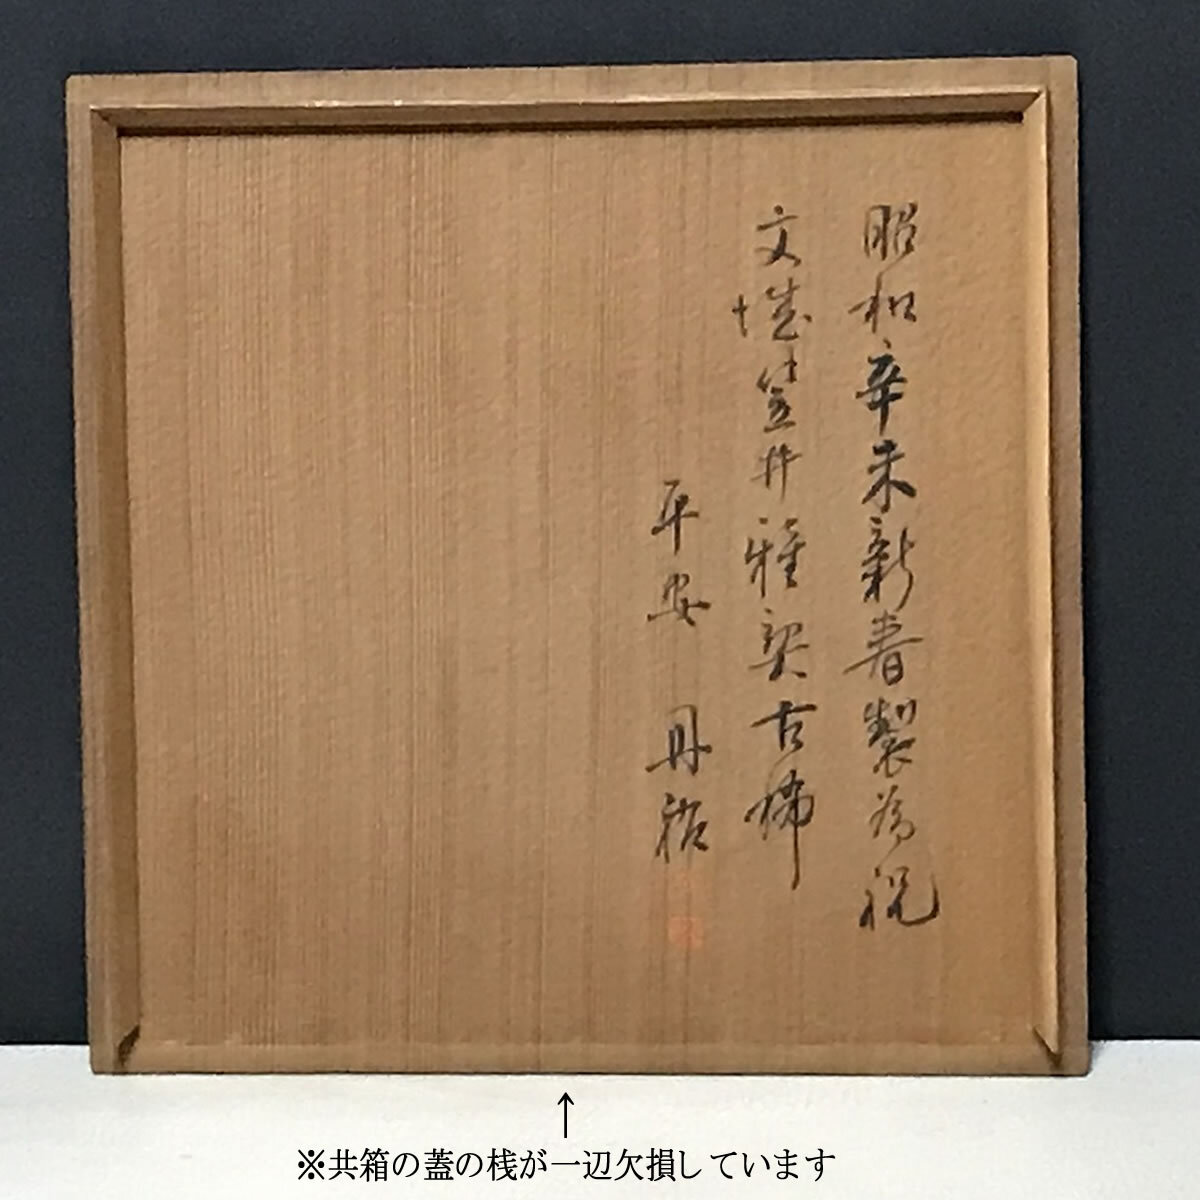 昭和辛未新春製為祝
文城笠井雅契古稀
平安 丹祐
↑
※共箱の蓋の桟が一辺欠損しています